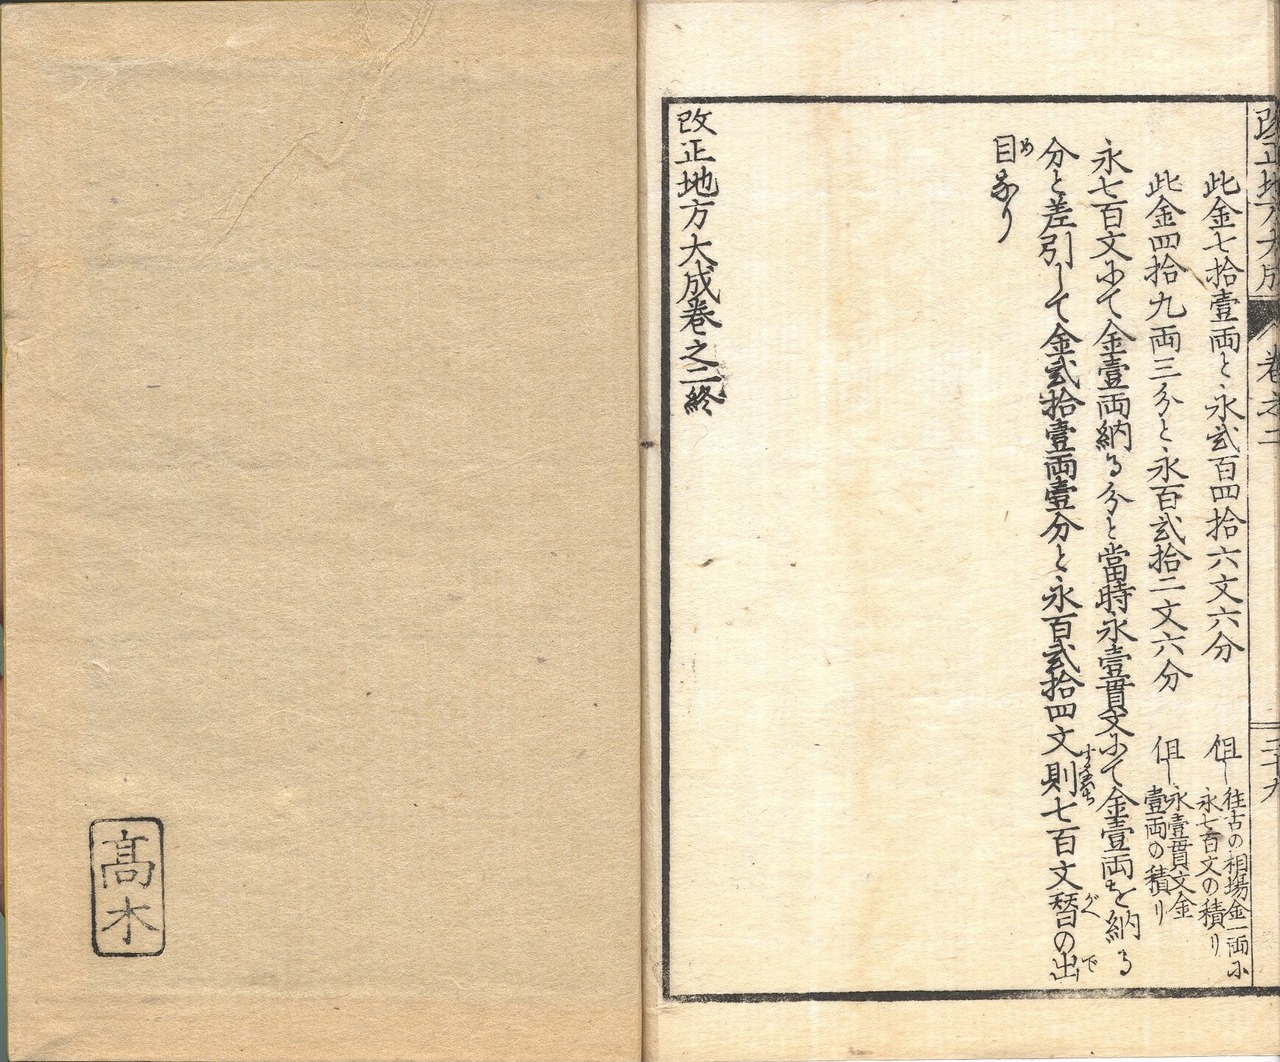 改正地方大成 卷之二 三十九
此金七拾壹両と永弐百四拾六文六分 但し往古の相場金一両に永七百文の積り
此金四拾九両三分と永百弐拾二文六分 但し永壹貫文金壹両の積り
永七百文にて金壹両納る分と當時永壹貫文にて金壹両を納る
分と差引して金弐拾壹両壹分と永百弐拾四文則七百文替の出
目なり
改正地方大成卷之二終
髙木